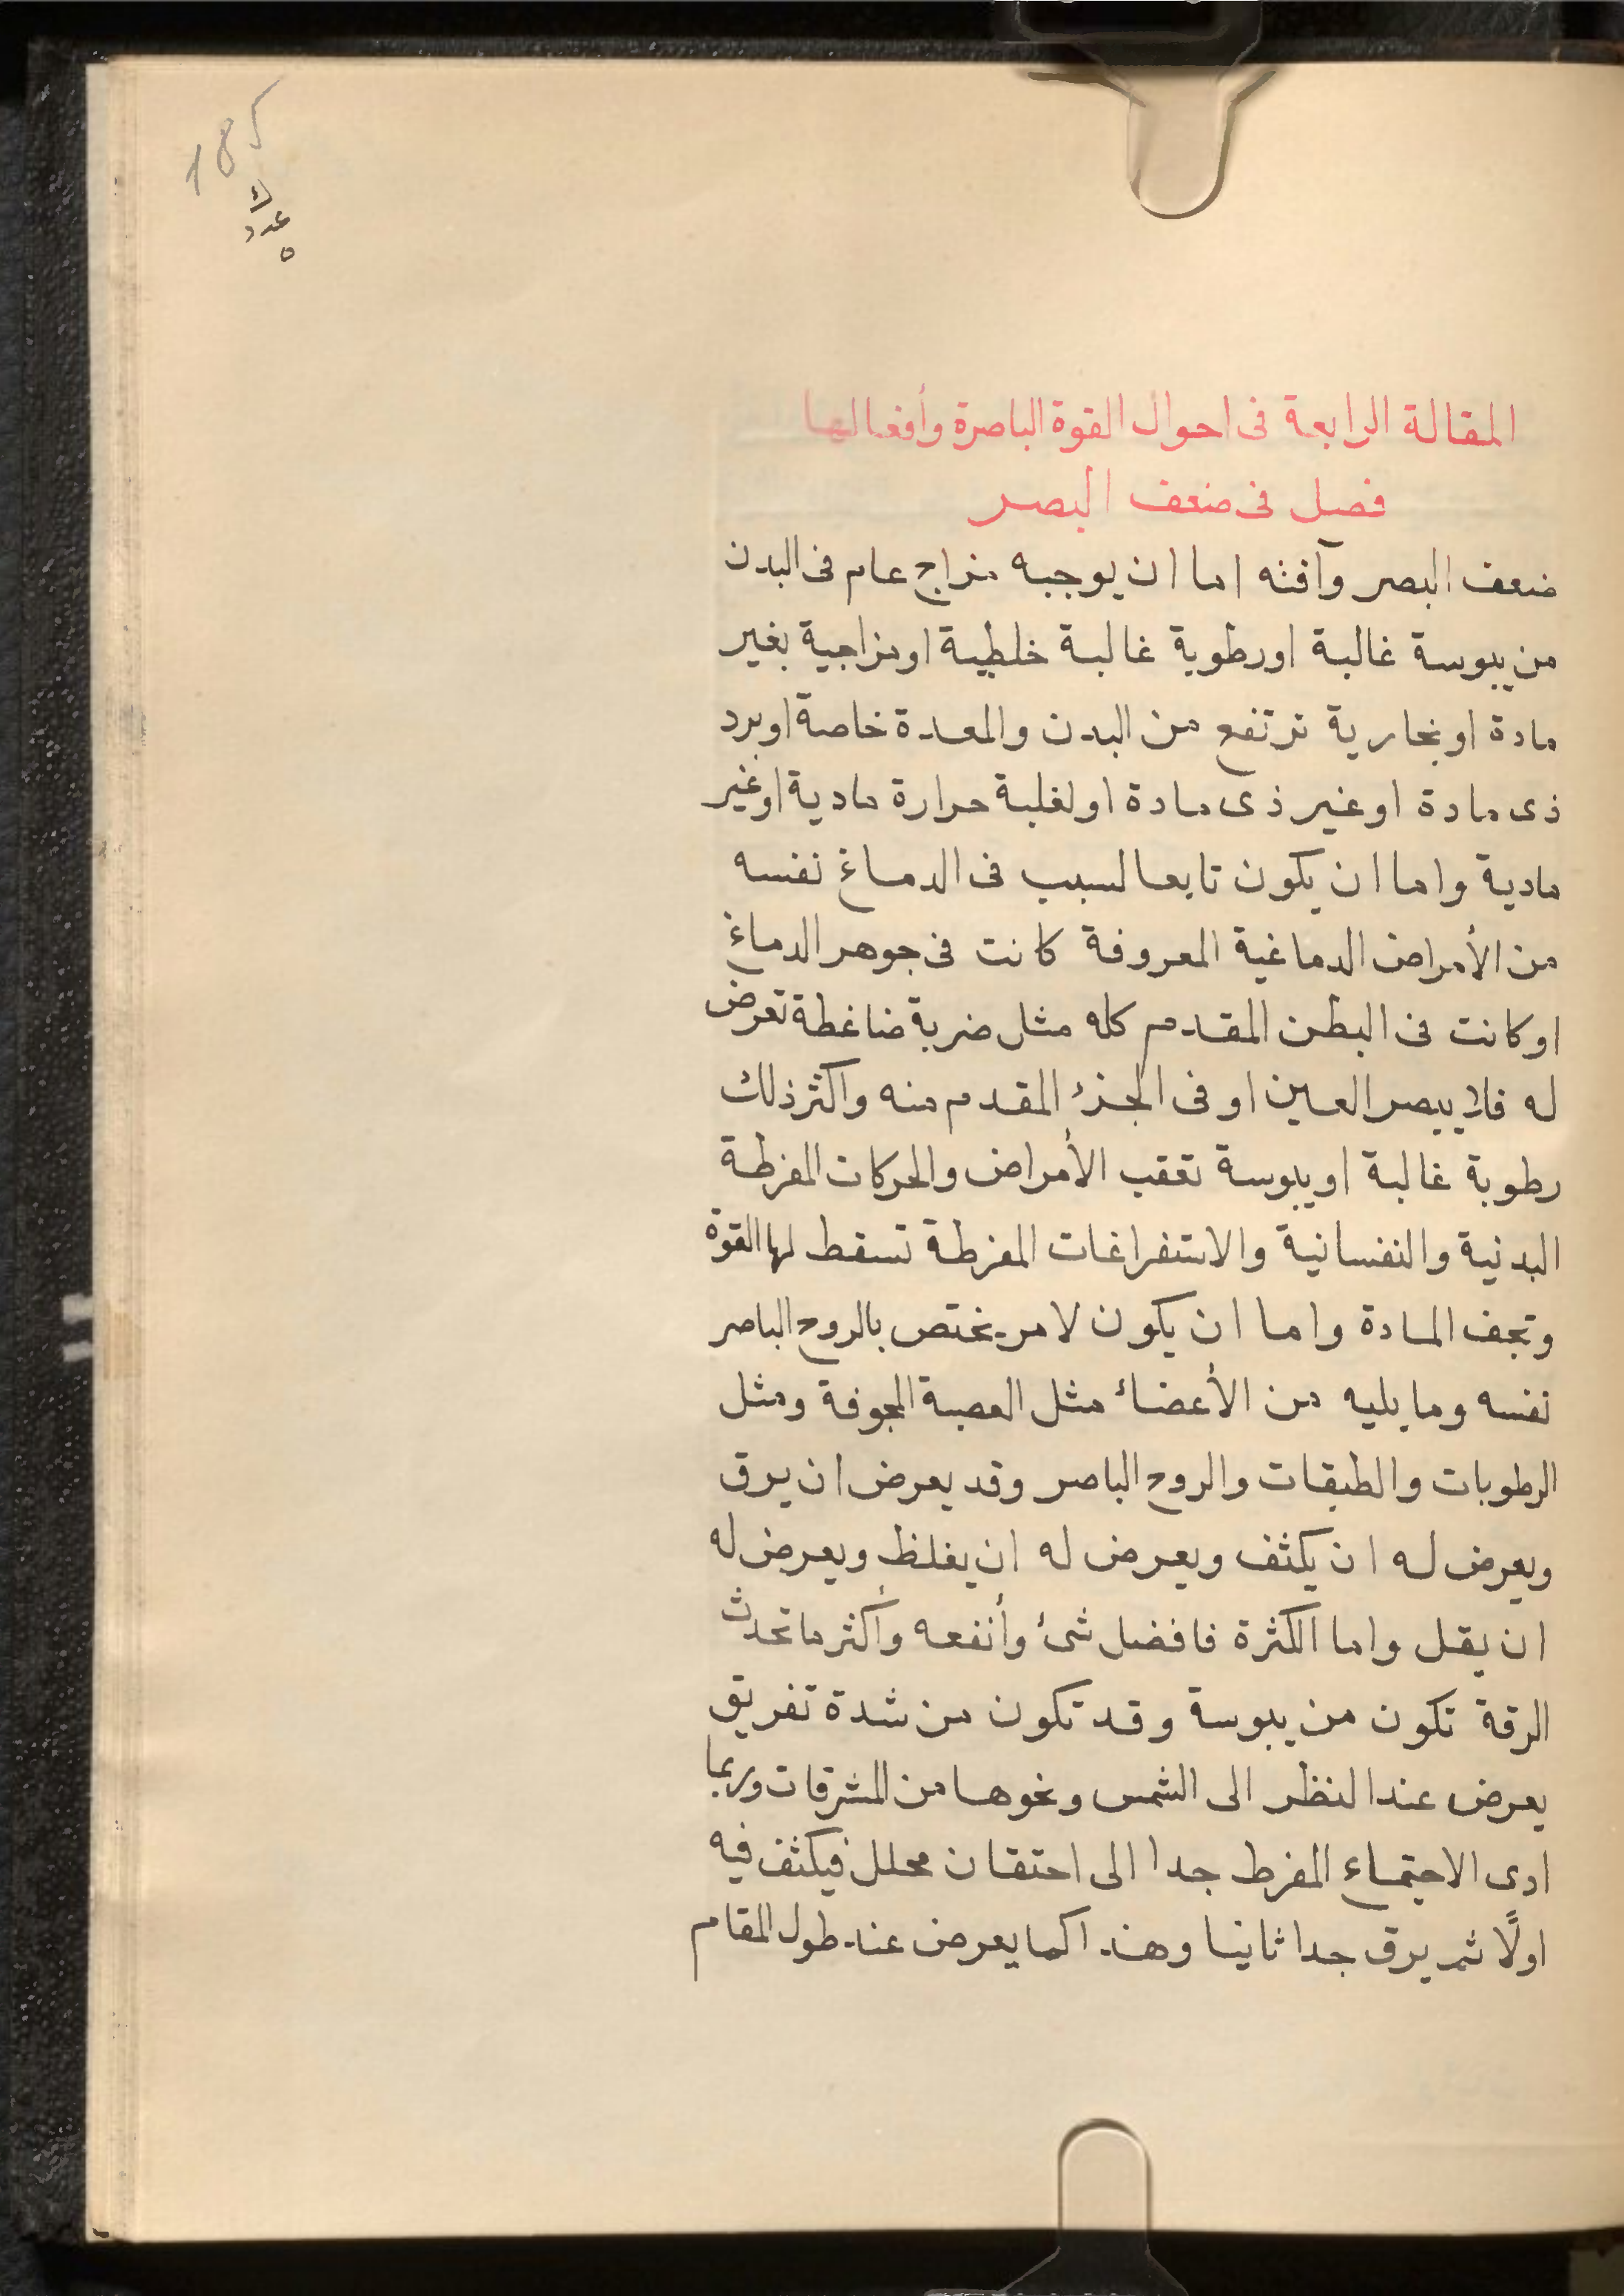 185
ك
عدد
٥
المقالة الرابعة فى احوال القوة الباصرة وأفعالها
فصل فى ضعف البصر
ضعف البصر وآفته اما ان يوجبه مزاج عام فى البدن
من يبوسة غالبة اورطوبة غالبة خلطية اومزاجية بغير
مادة اوبخارية ترتفع من البدن والمعدة خاصة اوبرد
ذى مادة اوغير ذى مادة اولغلبة حرارة مادية اوغير
مادية واما ان يكون تابعا لسبب فى الدماغ نفسه
من الأمراض الدماغية المعروفة كانت فى جوهر الدماغ
اوكانت فى البطن المقدم كله مثل ضربة ضاغطة تعرض
له فلا يبصر العين اوفى الجزء المقدم منه واكثر ذلك
رطوبة غالبة اويبوسة تعقب الأمراض والحركات المفرطة
البدنية والنفسانية والاستفراغات المفرطة تسقط لها القوة
وتجف المادة واما ان يكون لامر يختص بالروح الباصر
نفسه وما يليه من الأعضاء مثل العصبة المجوفة ومثل
الرطوبات والطبقات والروح الباصر وقد يعرض ان يرق
ويعرض له ان يكثف ويعرض له ان يغلظ ويعرض له
ان يقل واما الكثرة فافضل شئ وأنفعه وأكثر ما تحدث
الرقة تكون من يبوسة وقد تكون من شدة تفريق
يعرض عند النظر الى الشمس ونحوها من المشرقات وربما
ادى الاجتماع المفرط جدا الى احتقان محلل فيكثف فيه
اولًا ثم يرق جدا ثانيا وهذا كما يعرض عند طول المقام